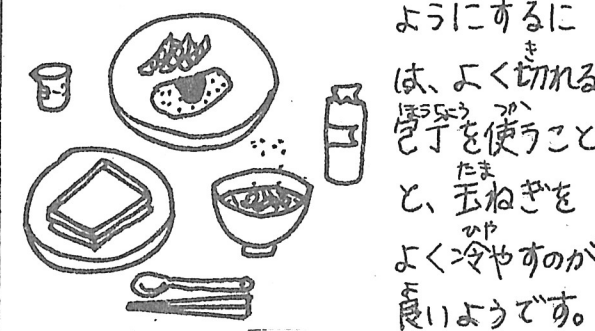 ようにするに
は、よく切れる
包丁を使うこと
と、玉ねぎを
よく冷やすのが
良いようです。